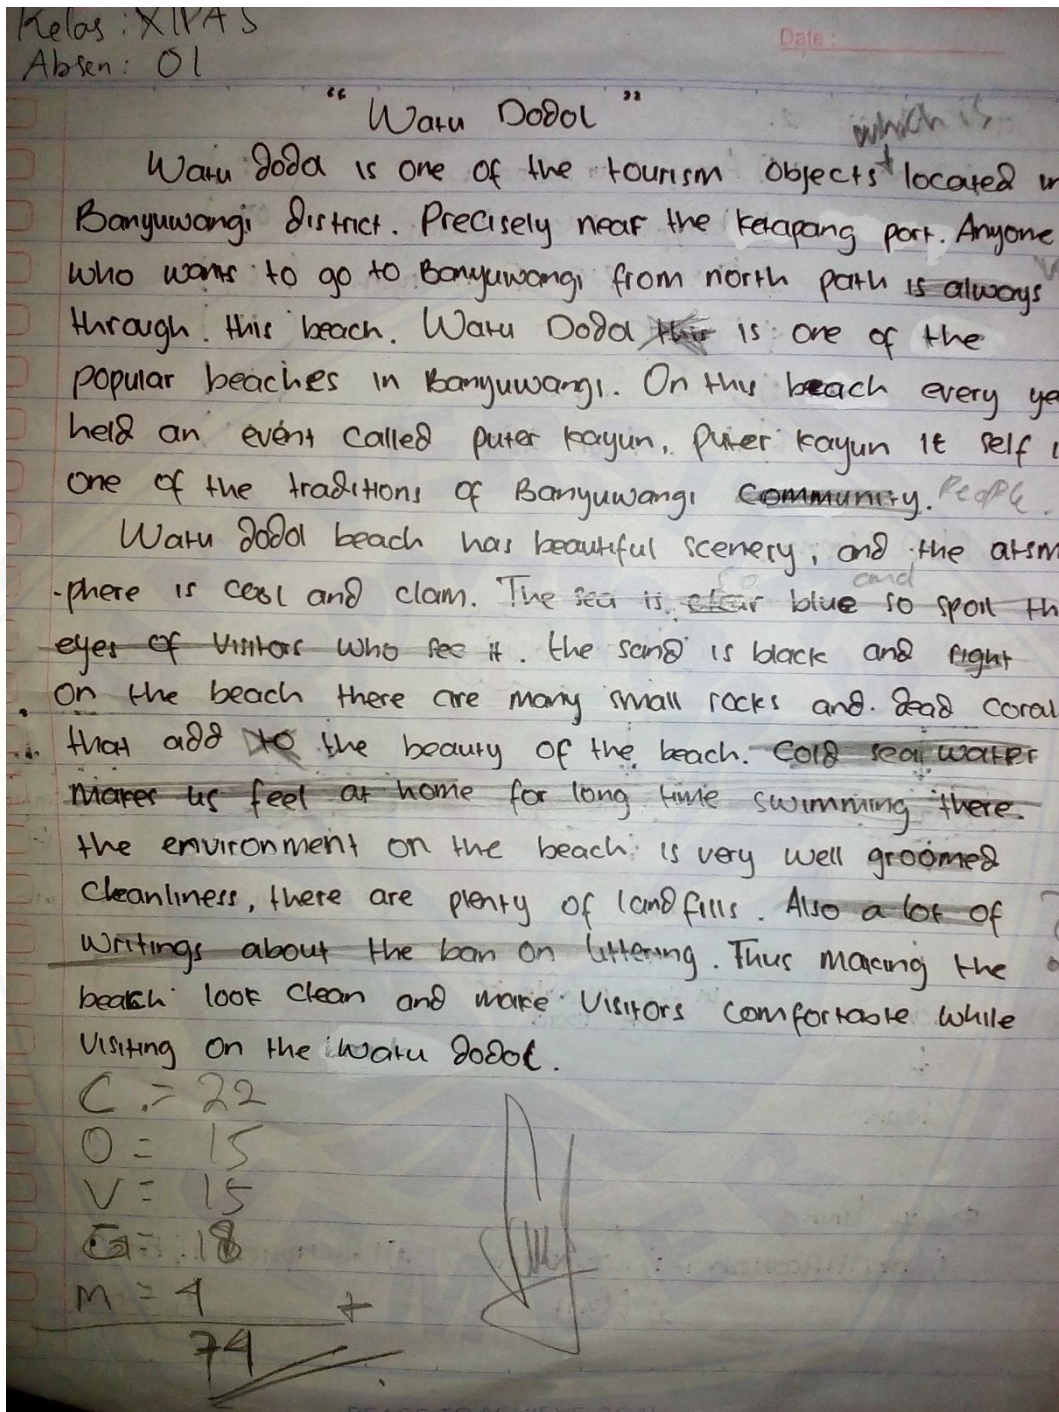 Kelas : XIPA5
Absen : 01
Date :
" Watu Dodol "
which is
Watu dodol is one of the tourism objects located in
Banyuwangi district. Precisely near the ketapang port. Anyone
who wants to go to Banyuwangi from north path is always
through this beach. Watu Dodol this is one of the
popular beaches in Banyuwangi. On this beach every ye
held an event called puter kayun, puter kayun it self i
one of the traditions of Banyuwangi community. People.
Watu dodol beach has beautiful scenery, and the atsm
-phere is cool and clam. The sea is clear blue so spoil th
and
eyes of visitors who see it. the sand is black and right
on the beach there are many small rocks and dead coral
that add to the beauty of the beach. Cold sea water
makes us feel at home for long time swimming there.
the environment on the beach is very well groomed
cleanliness, there are plenty of landfills. Also a lot of
writings about the ban on littering. Thus making the
beach look clean and make visitors comfortable while
visiting on the watu dodol.
C = 22
O = 15
V = 15
G = 18
M = 4 +
74